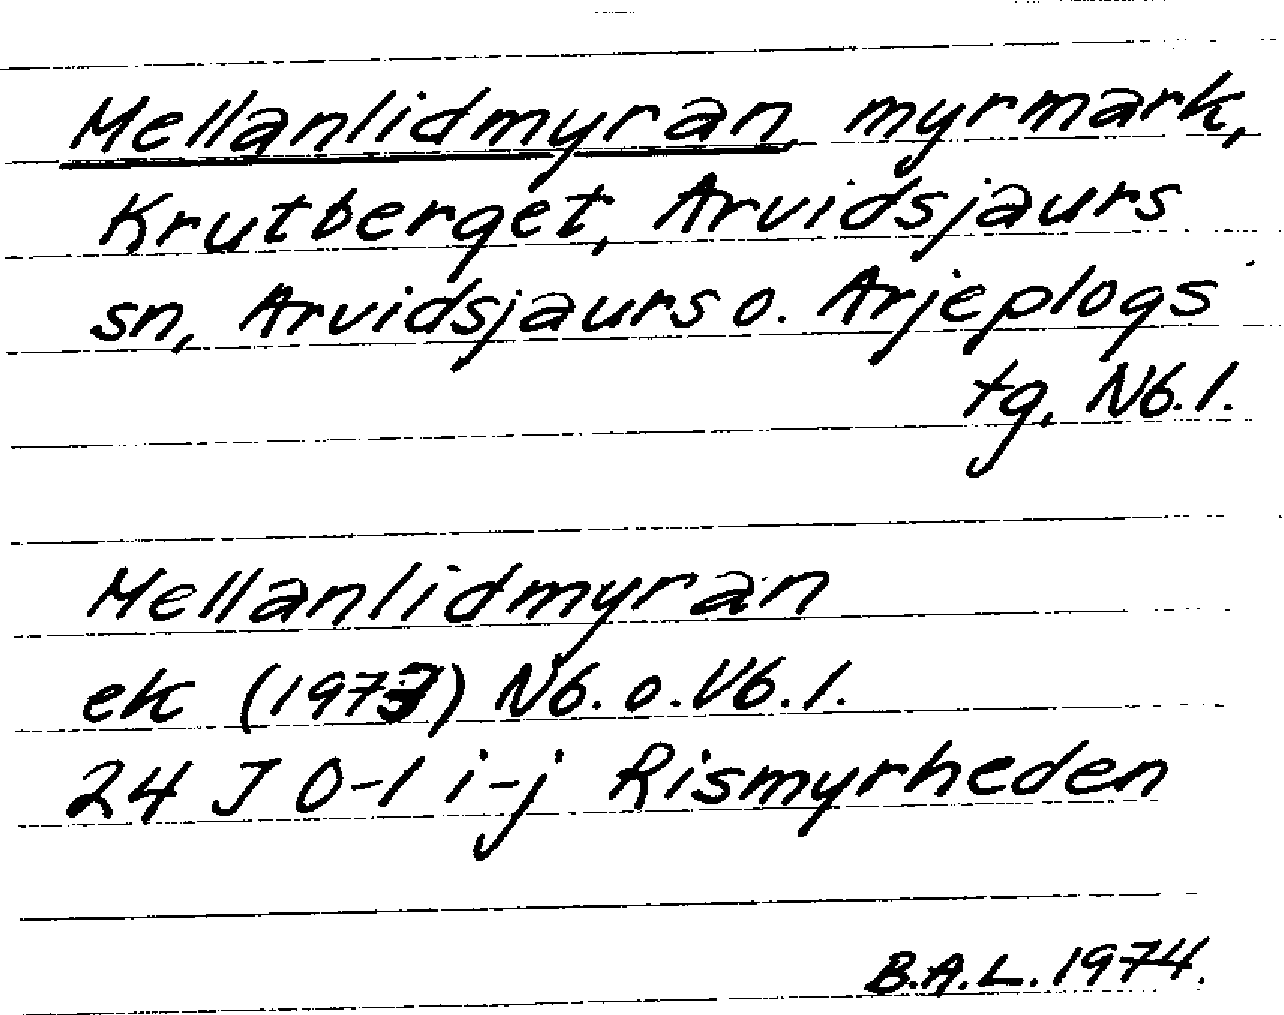 Mellanlidmyran, myrmark,
Krutberget, Arvidsjaurs
sn, Arvidsjaurs o. Arjeplogs
tg, Nb.l.
Mellanlidmyran
ek (1973) Nb. o. Vb.l.
24 J 0-1 i-j Rismyrheden
B.A.L. 1974.